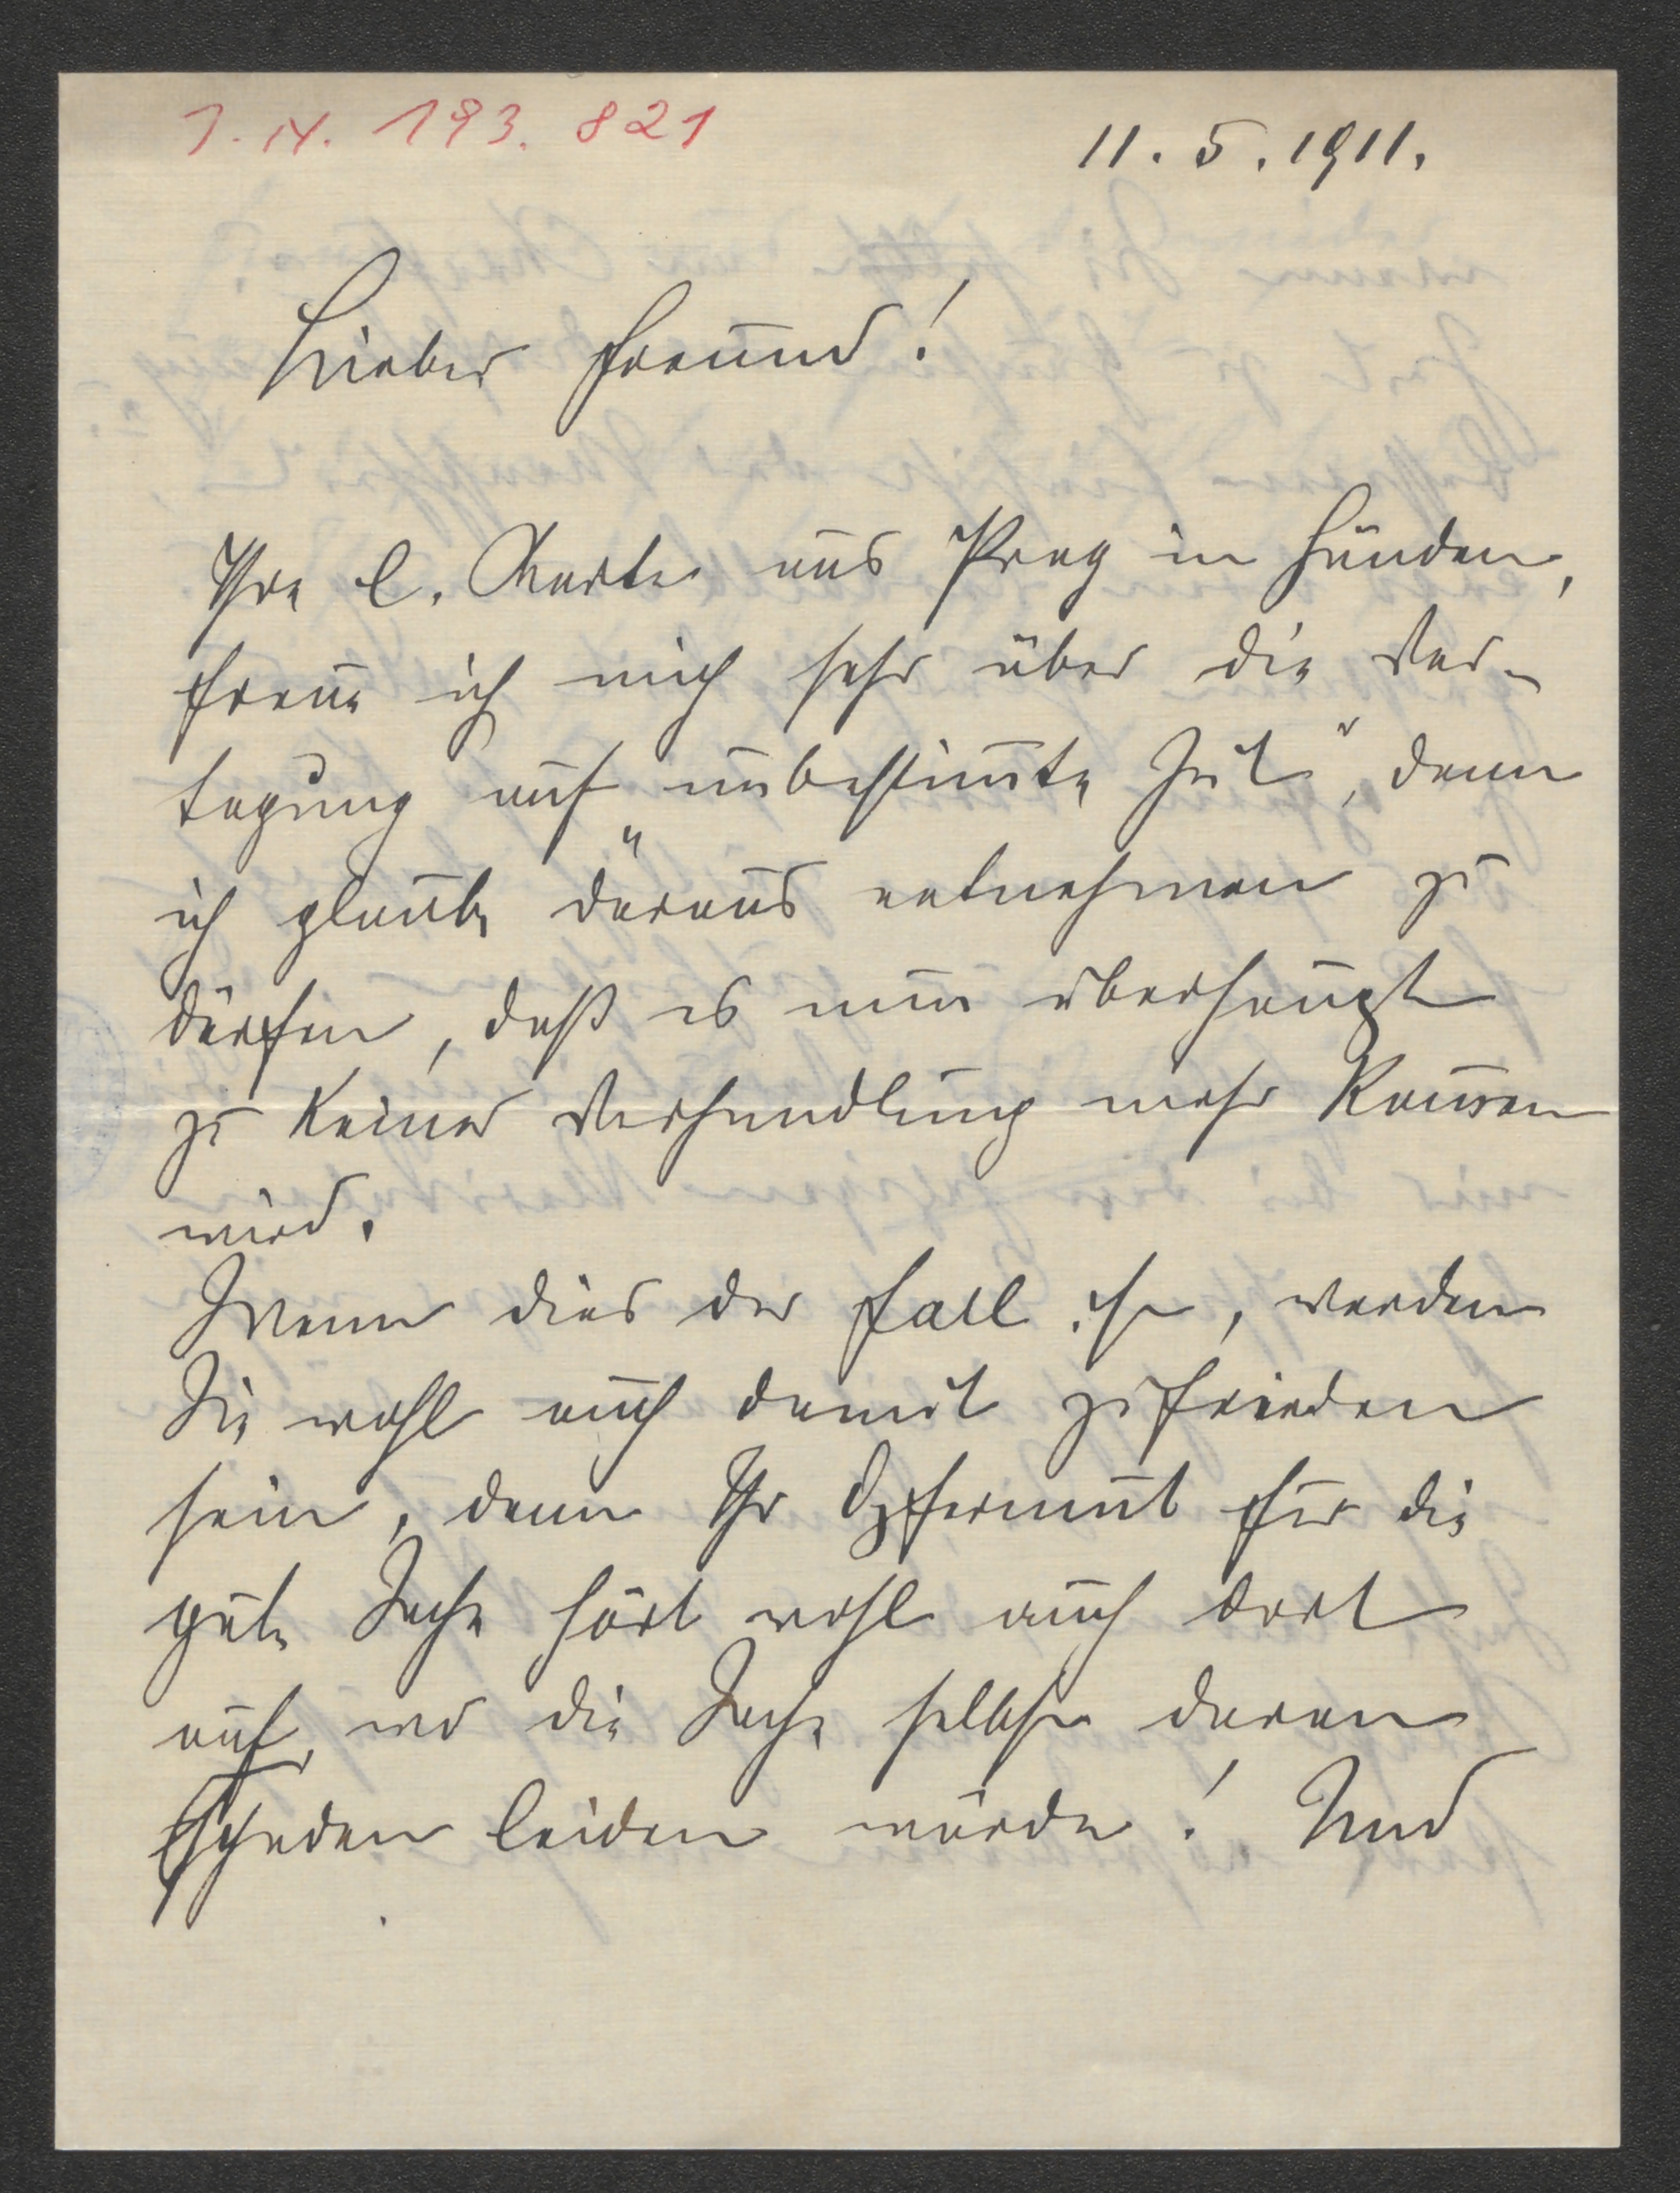 I. N. 193.821
11.5.1911.
Lieber Freund!
Ihre l. Karte aus Prag in Händen,
freue ich mich sehr über die Ver-
tagung auf „unbestimmte Zeit“, denn
ich glaube daraus entnehmen zu
dürfen, daß es nun überhaupt
zu keiner Verhandlung mehr kommen
wird.
Wenn dies der Fall ist, werden
Sie wohl auch damit zufrieden
sein, denn Ihr Opfermut für die
gute Sache hört wohl auch dort
auf, wo die Sache selbst daran
Schaden leiden würde! Und